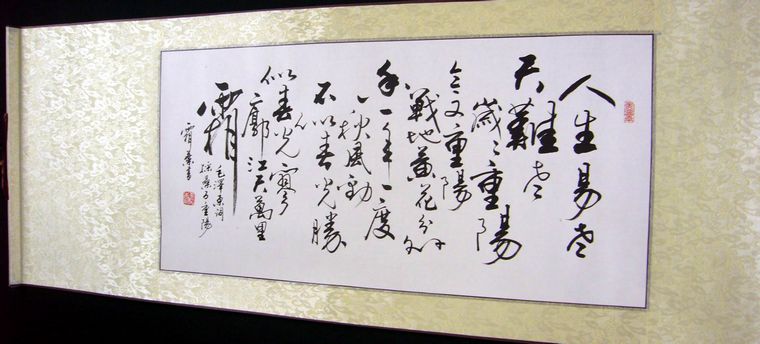 人生易老
天難老
歲々重陽
今又重陽
戰地黃花分外
香一年一度
秋風勁
不似春光勝
似春光寥
廓江天萬里
霜
毛澤東詞
採桑子重陽